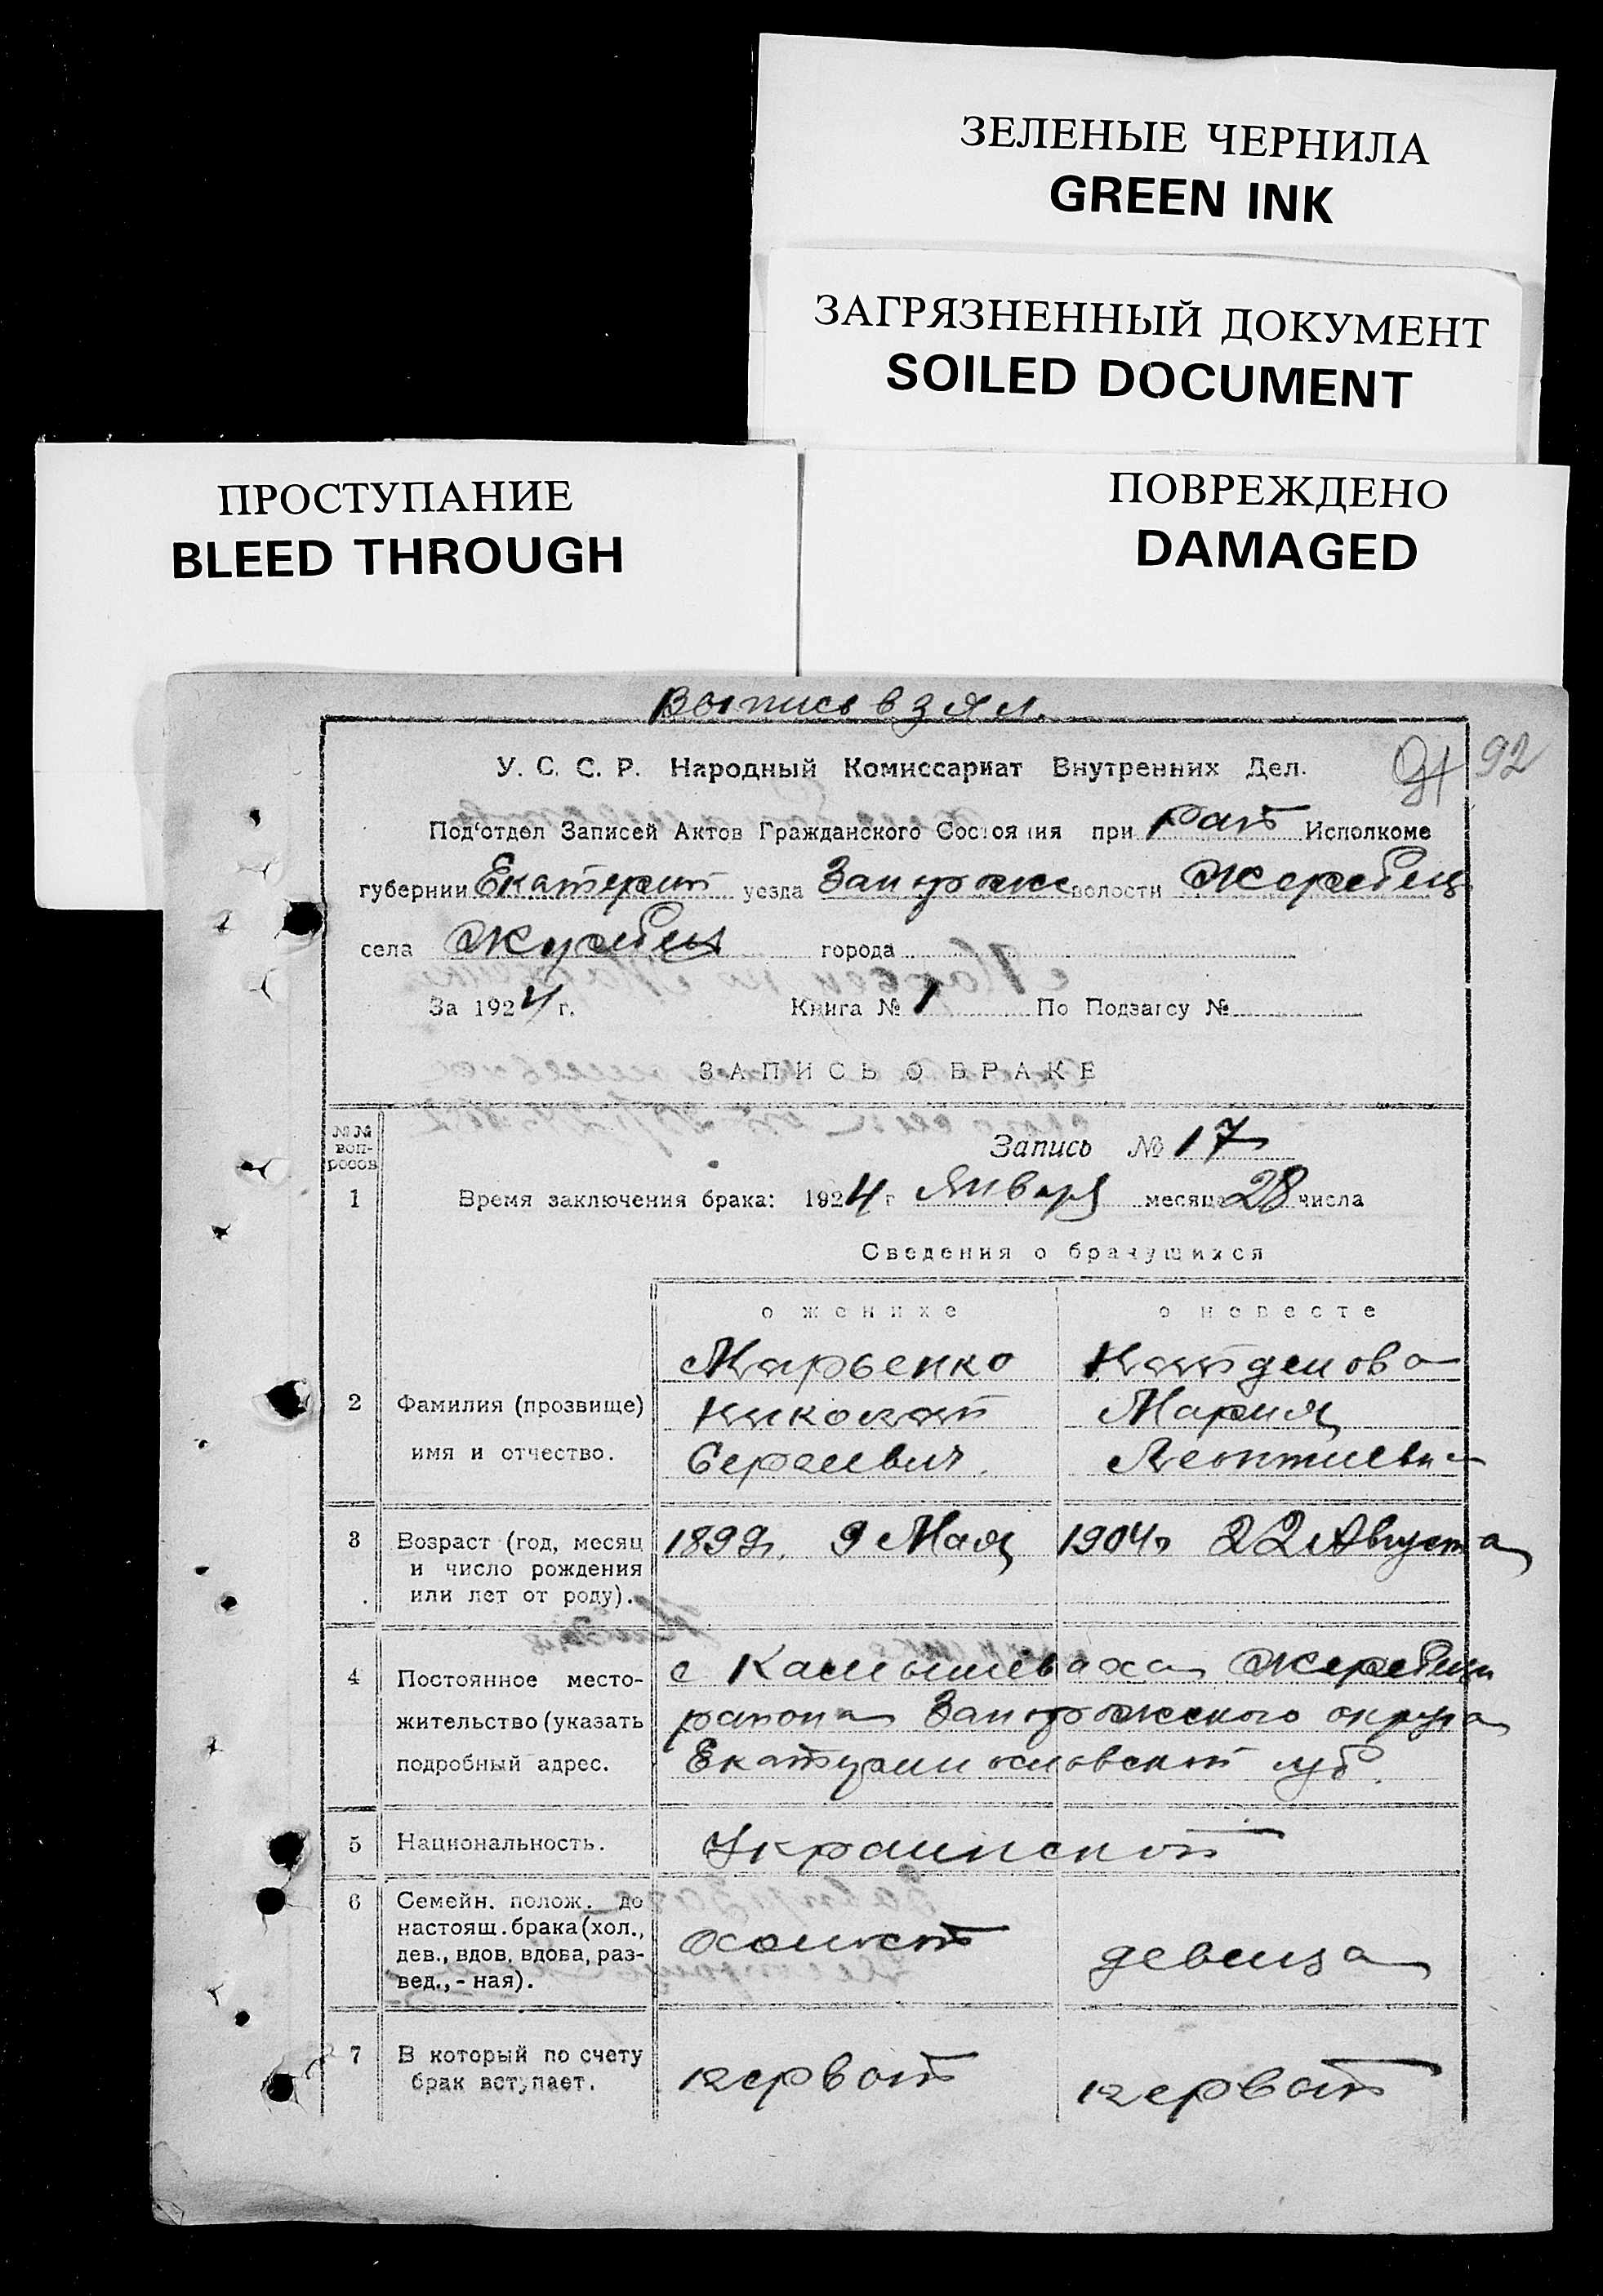 ЗЕЛЕНЫЕ ЧЕРНИЛА
GREEN INK
ЗАГРЯЗНЕННЫЙ ДОКУМЕНТ
SOILED DOCUMENT
ПРОСТУПАНИЕ
BLEED THROUGH
ПОВРЕЖДЕНО
DAMAGED
Выпись взял.
91 92
У. С. С. Р. Народный Комиссариат Внутренних Дел.
Под'отдел Записей Актов Гражданского Состояния при Рай Исполкоме
губернии Екатерин уезда Запорожс волости Жеребец
села Жеребец города
За 1924 г. Книга № 1 По Подзагсу №
ЗАПИСЬ О БРАКЕ
№№ воп-
росов
Запись № 17
1 Время заключения брака: 1924 г Января месяца 28 числа
Сведения о брачущихся
о женихе о невесте
Марьенко Найденова
2 Фамилия (прозвище) Николай Мария
имя и отчество. Сергеевич. Леонтиевна
3 Возраст (год, месяц 1899г. 9 Мая 1904г 22 Августа
и число рождения
или лет от роду).
4 Постоянное место- с Камышеваха Жеребецк
жительство (указать района Запорожского округа
подробный адрес. Екатеринославской губ.
5 Национальность. Украинской
6 Семейн. полож. до
настоящ. брака (хол., холост девица
дев., вдов, вдова, раз-
вед., - ная).
7 В который по счету первый первый
брак вступает.